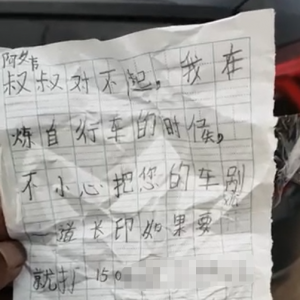 叔叔对不起,我在
炼自行车的时候,
不小心把您的车
道长印如果要
就打 150